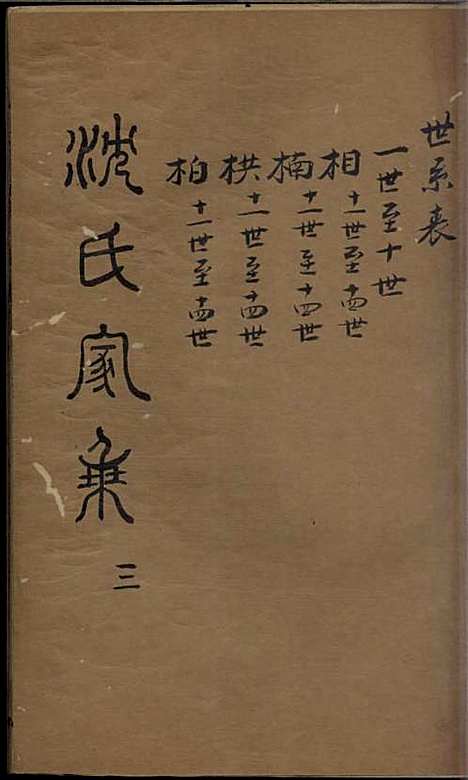 世系表
一世至十世
相十一世至十四世
楠十一世至十四世
栱十一世至十四世
柏十一世至十四世
沈氏家乘
三